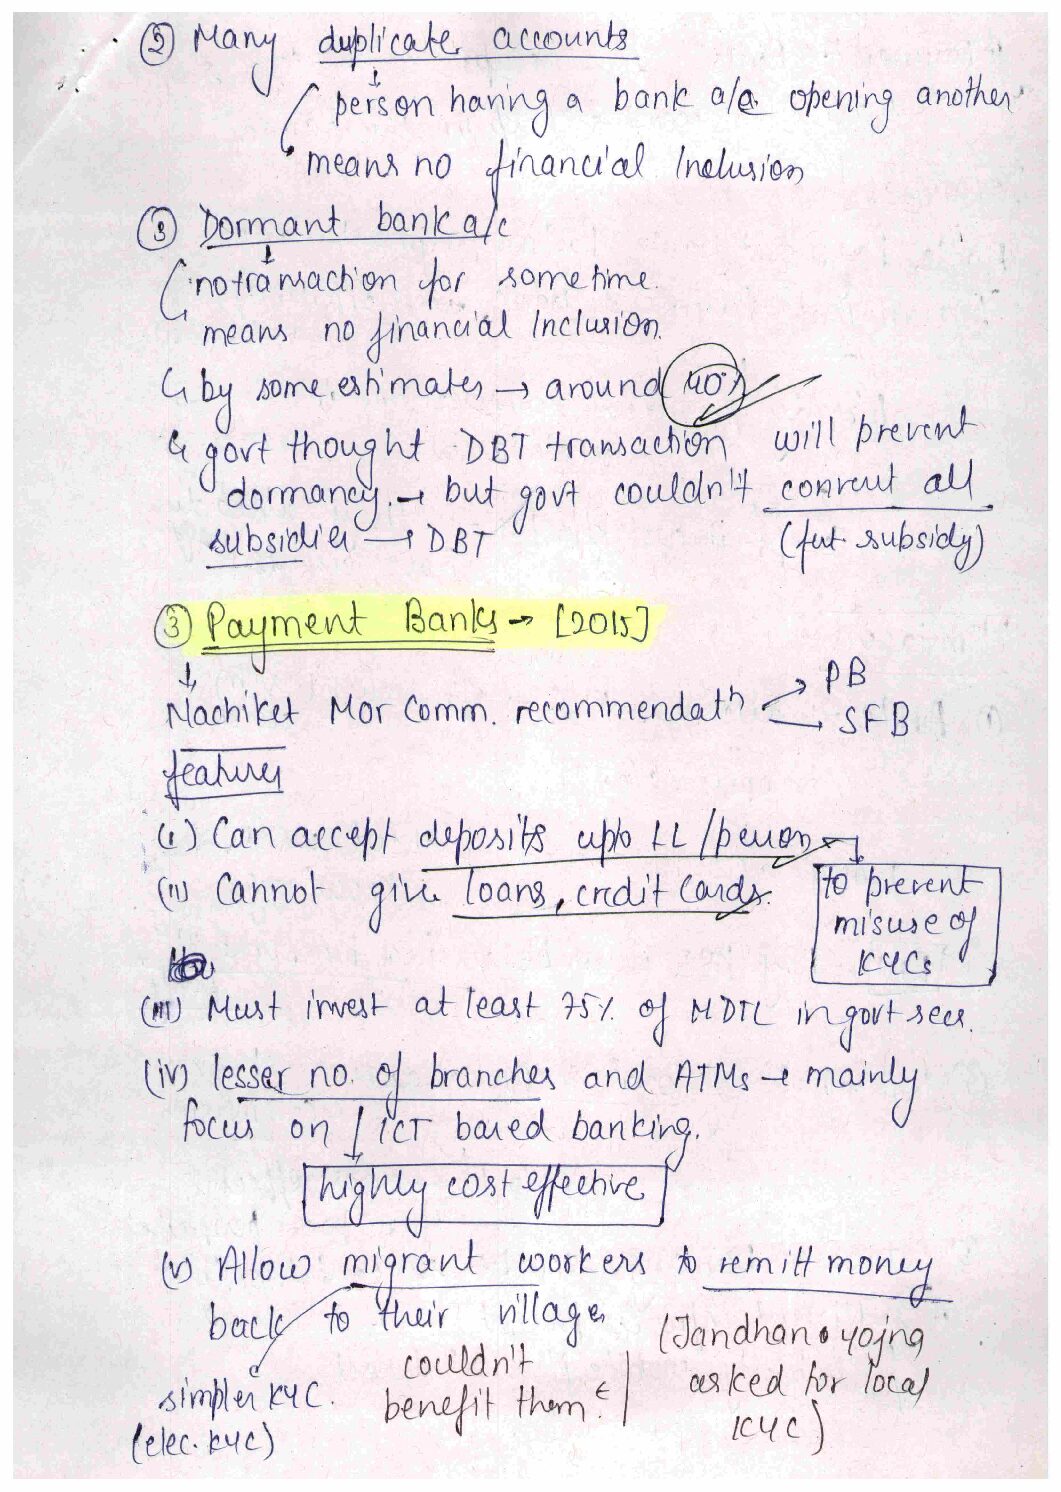 ② Many duplicate accounts
person having a bank a/c opening another
means no financial Inclusion
③ Dormant bank a/c
no transaction for sometime.
means no financial Inclusion.
by some estimates → around 40%
govt thought DBT transaction will prevent
dormancy. → but govt couldn't convert all
subsidies → DBT (fert. subsidy)
③ Payment Banks → [2015]
Nachiket Mor Comm. recommendatn PB
SFB
features
(i) Can accept deposits upto 1L/person
(ii) Cannot give loans, credit cards. to prevent
misuse of
KYCs
(iii) Must invest at least 75% of NDTL in govt secs.
(iv) lesser no. of branches and ATMs → mainly
focus on ICT based banking.
highly cost effective
(v) Allow migrant workers to remitt money
back to their village
(Jandhan yojna
asked for local
KYC)
couldn't
benefit them.
simpler KYC.
(elec. KYC)